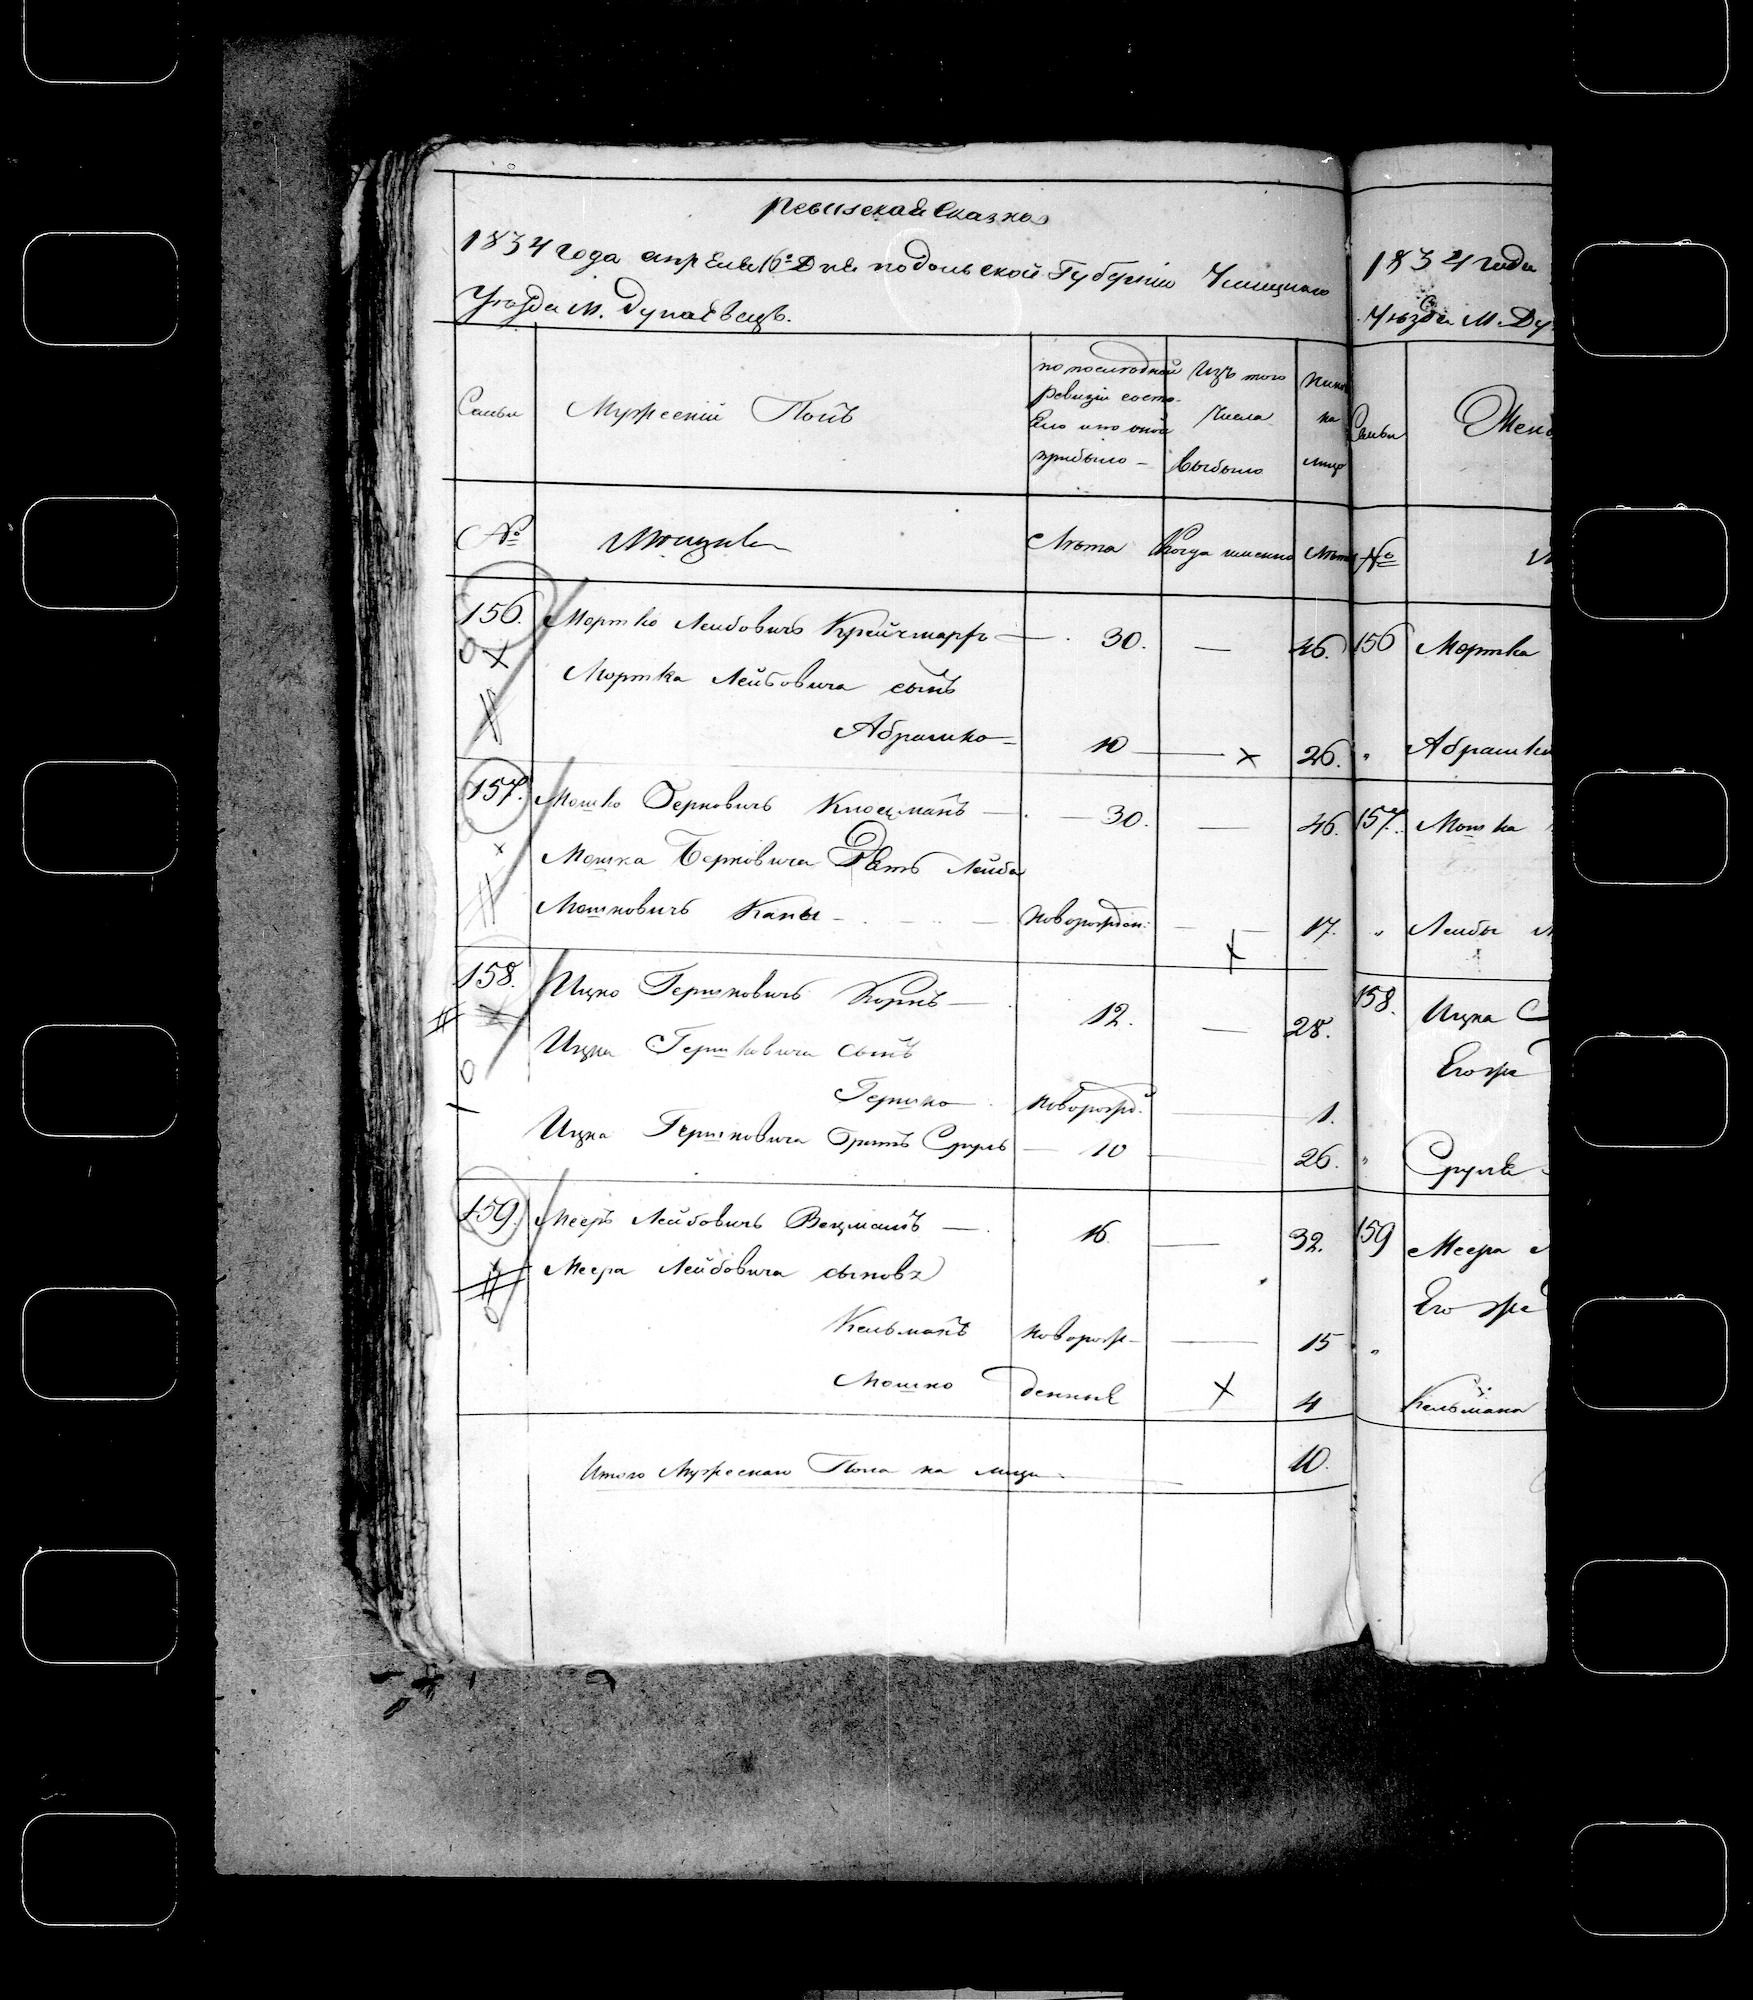 Ревизская Сказка
1834 года апреля 16го Дня подольской Губернии Ушицкаго
Уезда М. Дунаевецъ.
Семьи
Мужеский Полъ
по последней
ревизии состо-
яло и по оной
прибыло -
Изъ того
Числа
выбыло
Ныне
на
лицо
№
Мещане
Лета
Когда именно
Лета
156. Мортко Лейбовичъ Крейчмаръ — 30. — 46.
Мортка Лейбовича сынъ
Абрамко — 10 — 26.
157. Мошко Берковичъ — 30. — 46.
Мошка Берковича Зять Лейба
Мошковичъ - Новорожден: — 17.
158. Ицко Гершковичъ Корнъ — 12. — 28.
Ицка Гершковича сынъ
Гершко новорожд. — 1.
Ицка Гершковича братъ Сруль — 10 — 26.
159. Мееръ Лейбовичъ Вецманъ — 16. — 32.
Меера Лейбовича сыновя
Кельманъ новорож- — 15
Мошко денные 4
Итого Мужескаго Пола на лицо — 10.
1834 года
Уезда М. Ду
Семьи
Жен
№
156 Мортка
" Абрамки
157. Мошка
" Лейбы М
158. Ицка
Его же
" Сруля
159 Меера
Его же
" Кельмана